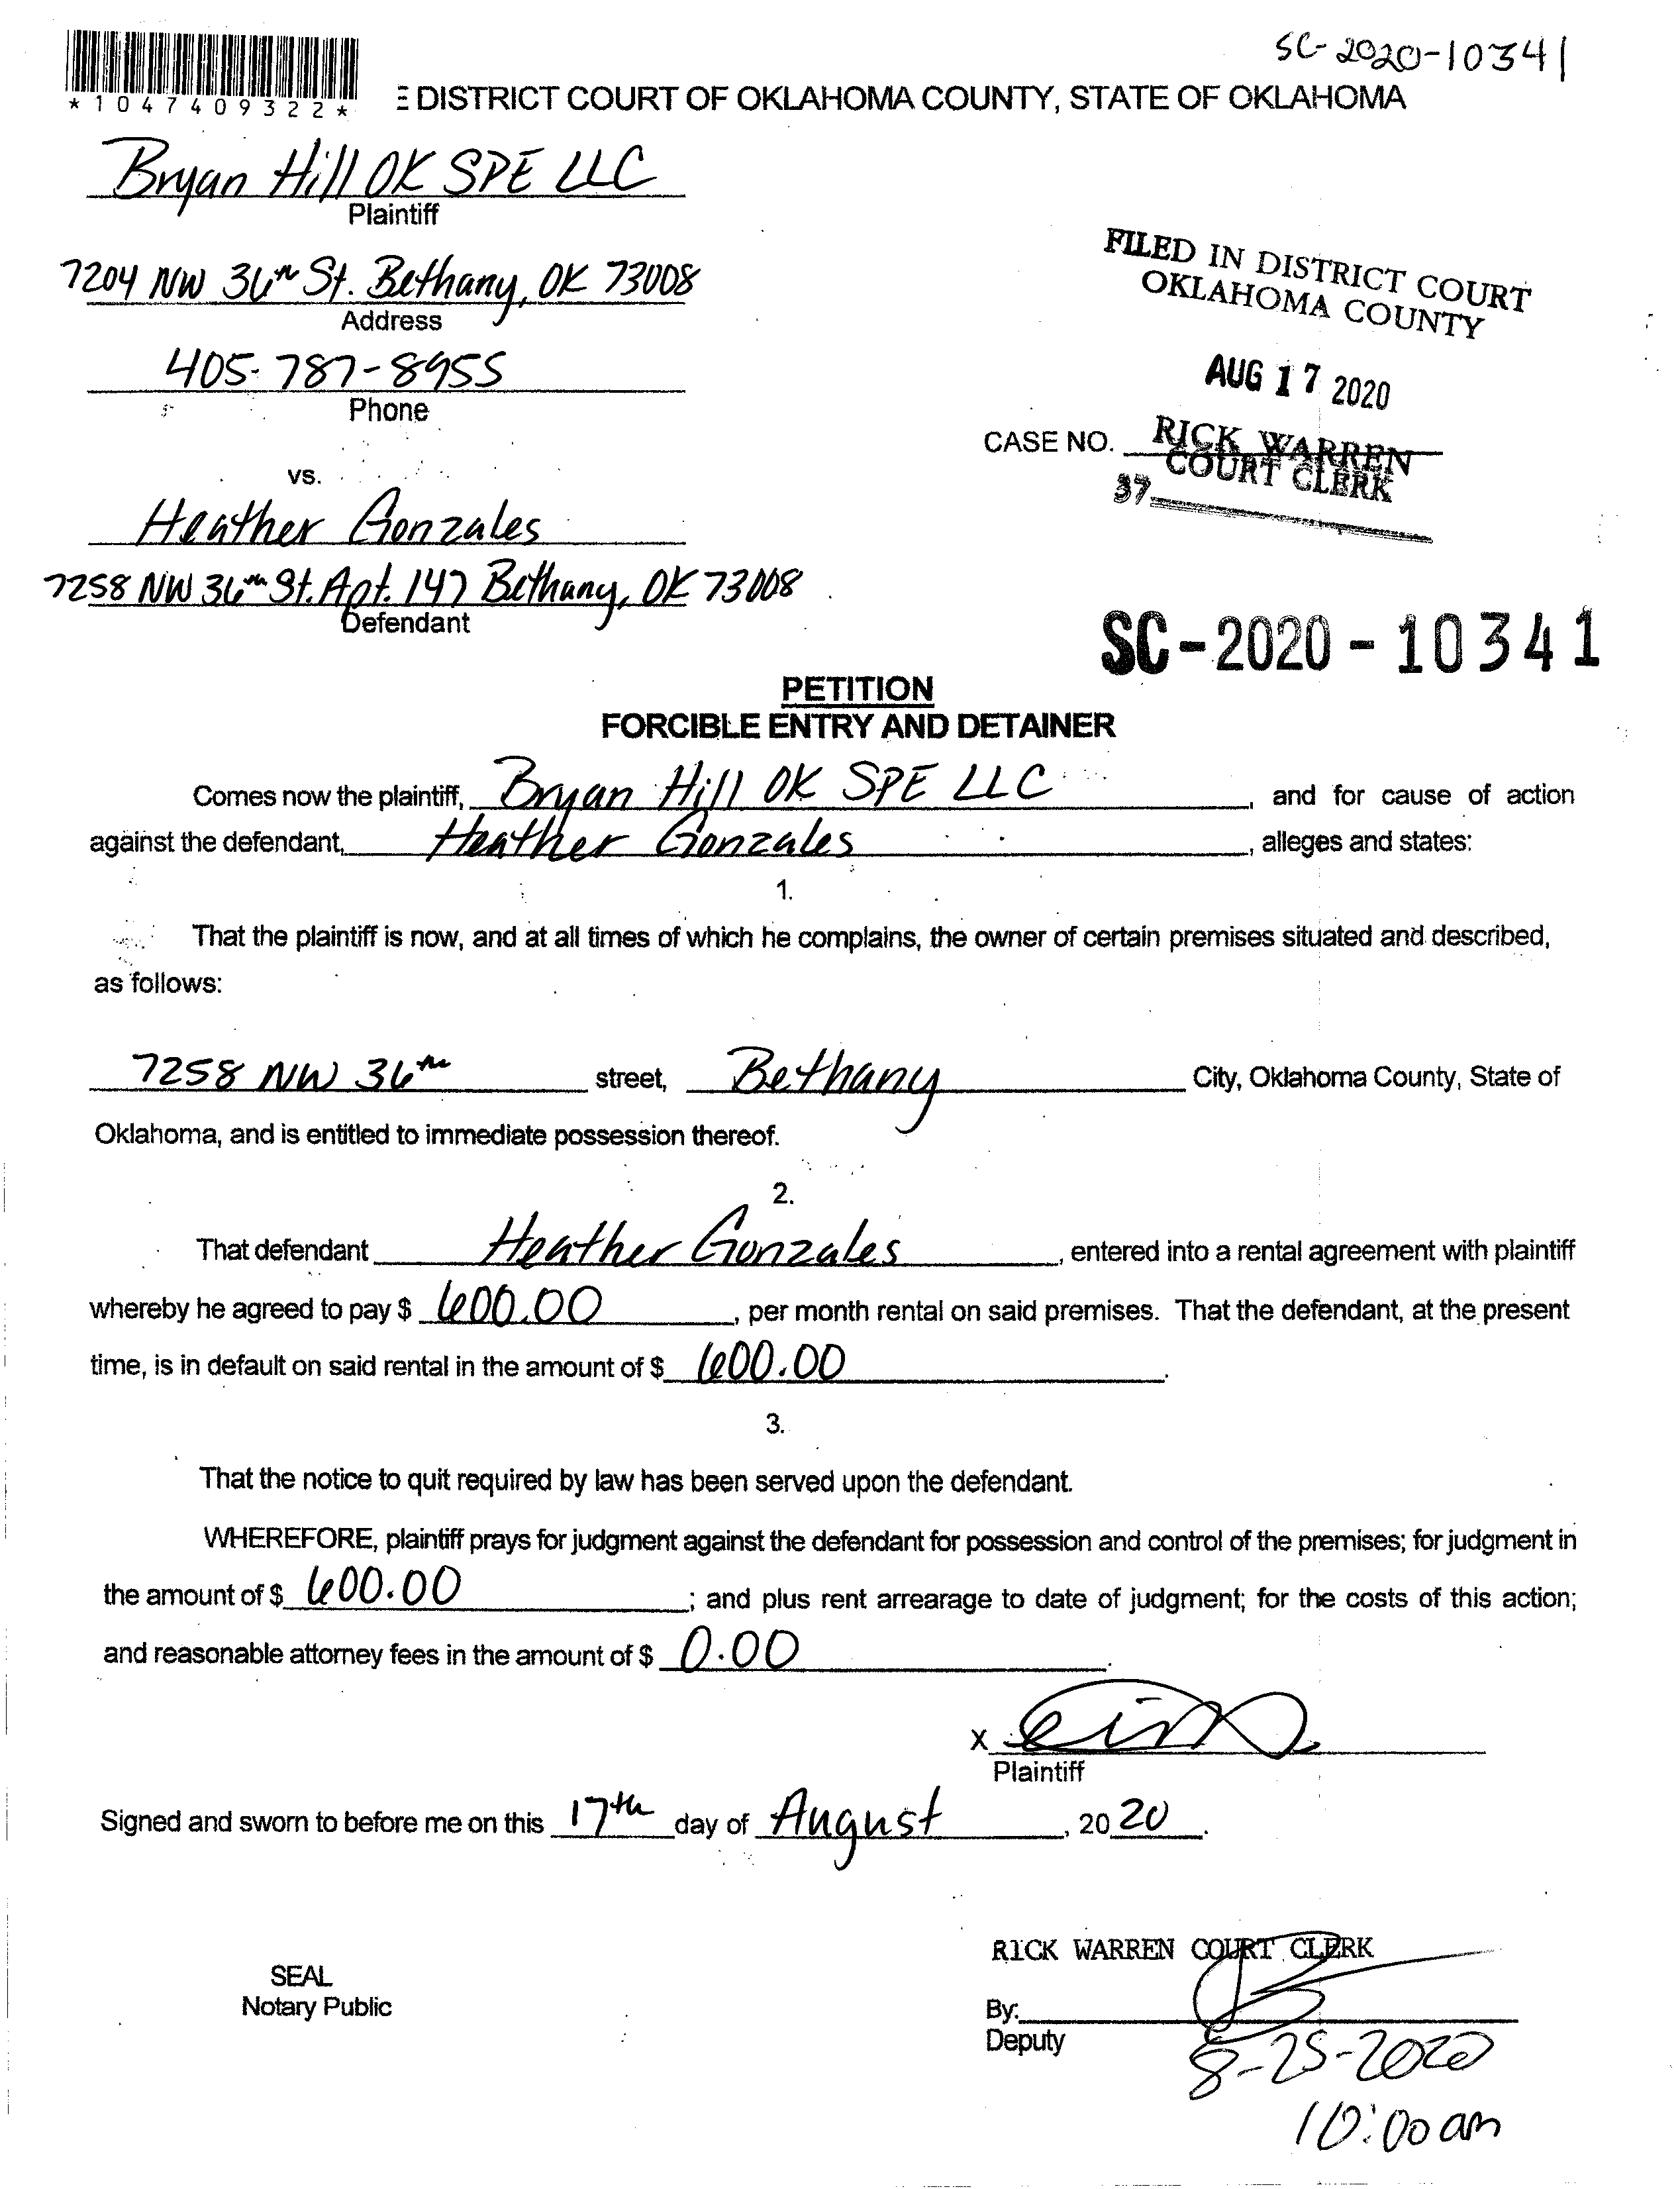 SC-2020-10341
*1047409322*
E DISTRICT COURT OF OKLAHOMA COUNTY, STATE OF OKLAHOMA
Bryan Hill OK SPE LLC
Plaintiff
7204 NW 36th St. Bethany, OK 73008
Address
405-787-8955
Phone
FILED IN DISTRICT COURT
OKLAHOMA COUNTY
AUG 17 2020
CASE NO. RICK WARREN
COURT CLERK
37
vs.
Heather Gonzales
7258 NW 36th St. Apt. 147 Bethany, OK 73008
Defendant
SC-2020-10341
PETITION
FORCIBLE ENTRY AND DETAINER
Comes now the plaintiff, Bryan Hill OK SPE LLC, and for cause of action
against the defendant, Heather Gonzales, alleges and states:
1.
That the plaintiff is now, and at all times of which he complains, the owner of certain premises situated and described,
as follows:
7258 NW 36th street, Bethany City, Oklahoma County, State of
Oklahoma, and is entitled to immediate possession thereof.
2.
That defendant Heather Gonzales, entered into a rental agreement with plaintiff
whereby he agreed to pay $ 600.00, per month rental on said premises. That the defendant, at the present
time, is in default on said rental in the amount of $ 600.00.
3.
That the notice to quit required by law has been served upon the defendant.
WHEREFORE, plaintiff prays for judgment against the defendant for possession and control of the premises; for judgment in
the amount of $ 600.00; and plus rent arrearage to date of judgment; for the costs of this action;
and reasonable attorney fees in the amount of $ 0.00.
X
Plaintiff
Signed and sworn to before me on this 17th day of August, 2020.
RICK WARREN COURT CLERK
SEAL
Notary Public
By:
Deputy
8-25-2020
10:00am